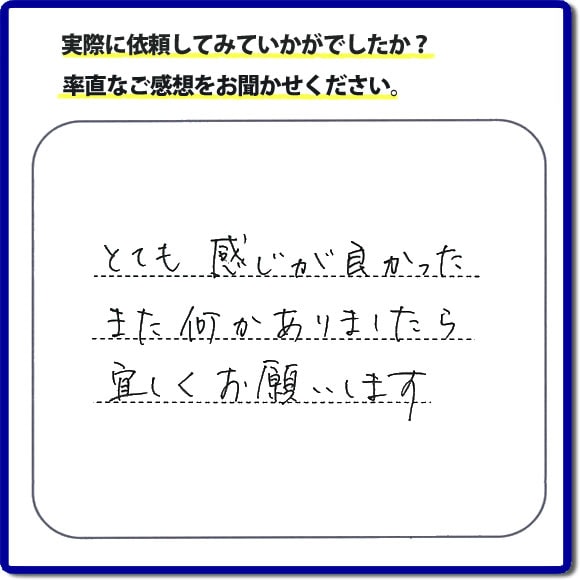 実際に依頼してみていかがでしたか？
率直なご感想をお聞かせください。
とても感じが良かった
また何かありましたら
宜しくお願いします